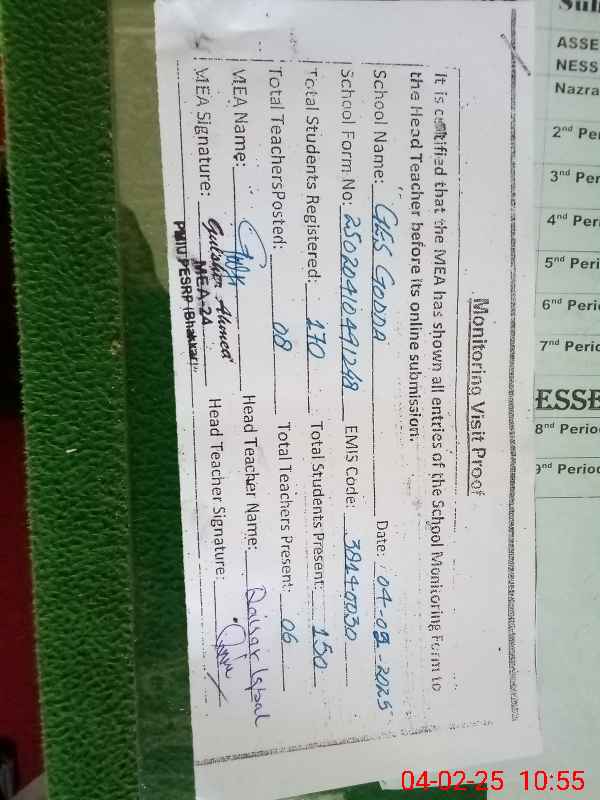 Monitoring Visit Proof
It is certified that the MEA has shown all entries of the School Monitoring Form to
the Head Teacher before its online submission.
School Name: GES GODDA Date: 04-02-2025
School Form No: 25020410491248 EMIS Code: 38140030
Total Students Registered: 170 Total Students Present: 150
Total TeachersPosted: 08 Total Teachers Present: 06
MEA Name: Head Teacher Name: Qaisar Iqbal
Gulsher Ahmed
MEA Signature: Head Teacher Signature:
MEA-24
PMIU PESRP (Bhakkar)
ASSE
NESS
Nazra
2nd Per
3rd Per
4th Peri
5th Peri
6th Peri
7th Perio
ESSE
8nd Period
9nd Period
04-02-25 10:55